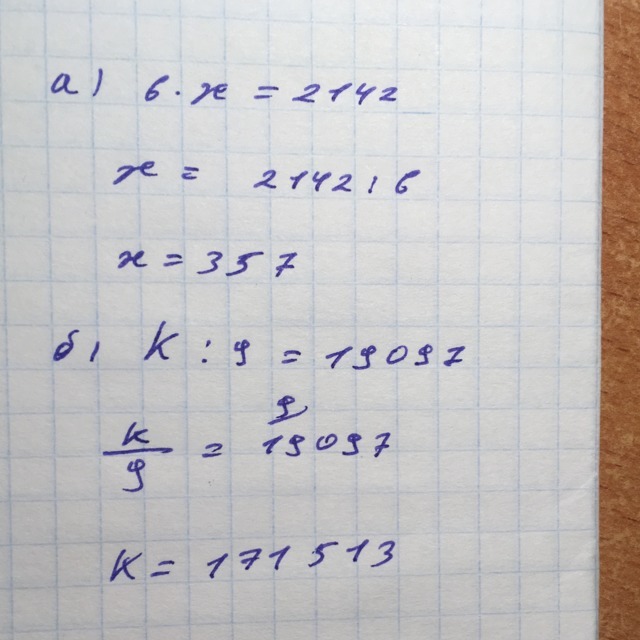 а) 6·x = 2142
x = 2142 : 6
x = 357
б) K : 9 = 19097
9
K/9 = 19097
K = 171513